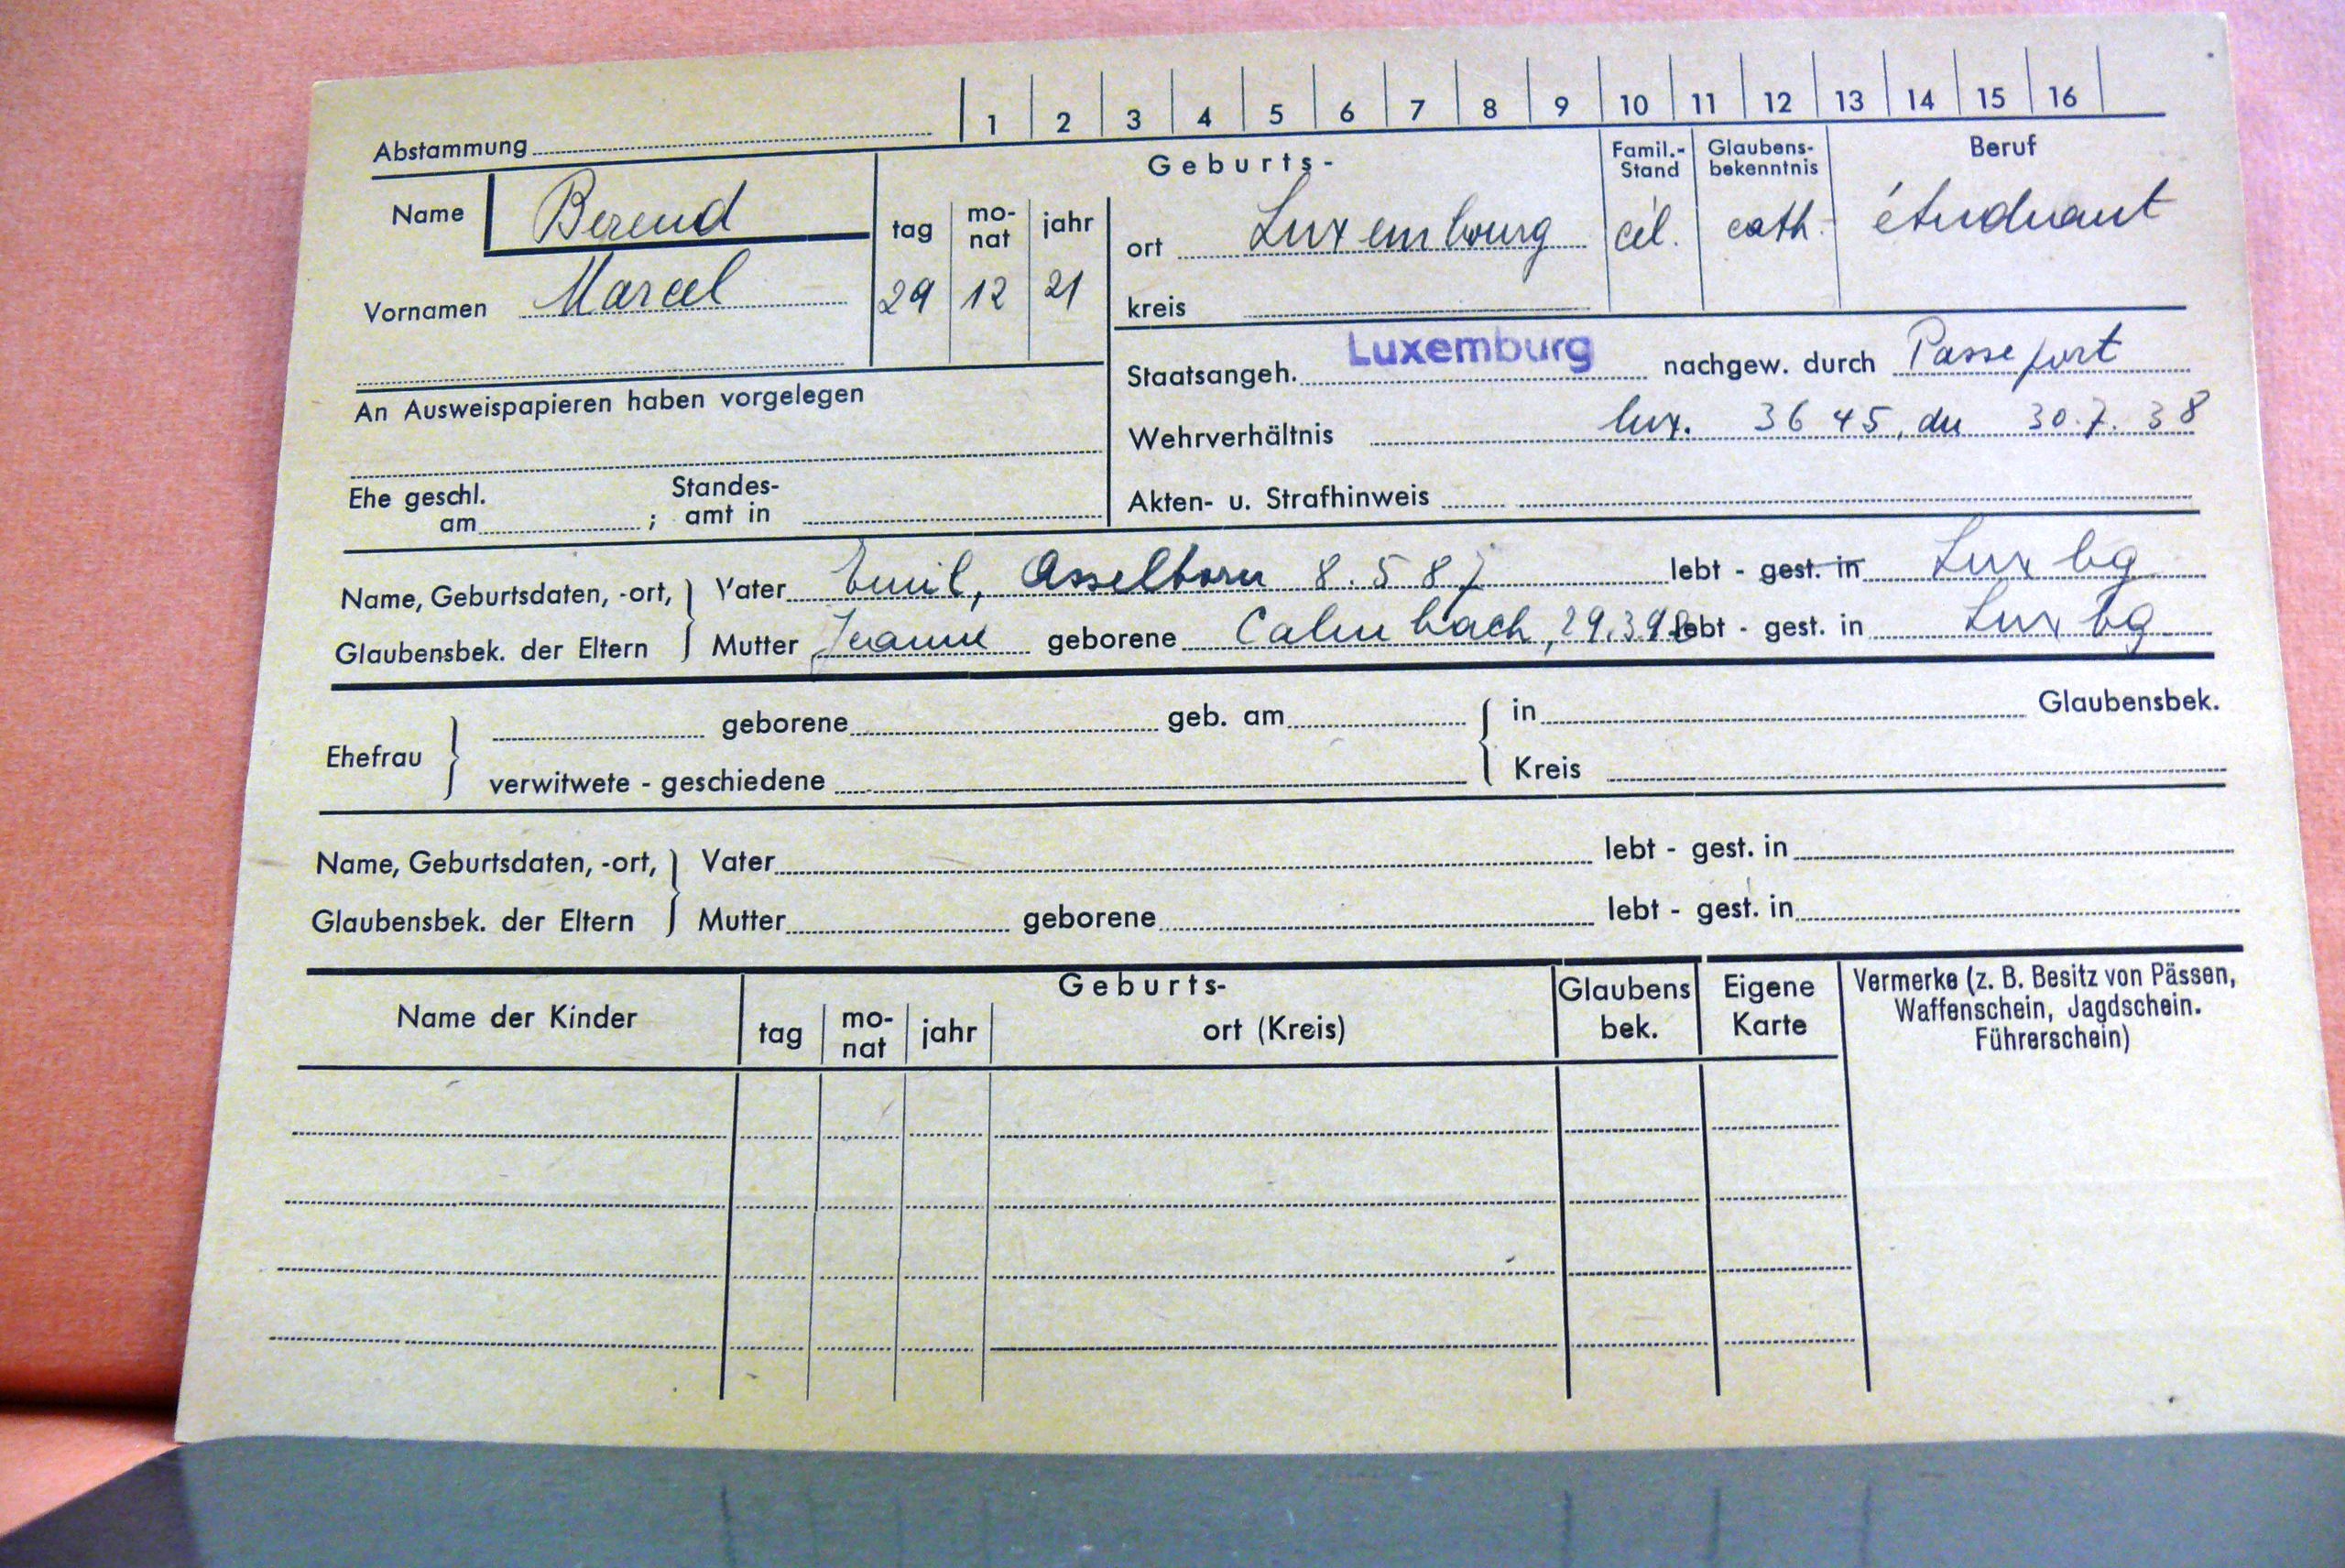 Abstammung 1 2 3 4 5 6 7 8 9 10 11 12 13 14 15 16
Name Berend
Vornamen Marcel
Geburts-
tag mo-nat jahr
29 12 21
ort Luxembourg
kreis
Famil.-Stand
cél.
Glaubens-bekenntnis
cath.
Beruf
étudiant
An Ausweispapieren haben vorgelegen
Staatsangeh. Luxemburg nachgew. durch Passeport
Wehrverhältnis lux. 3645, du 30.7.38
Ehe geschl. am ; Standes-amt in
Akten- u. Strafhinweis
Name, Geburtsdaten, -ort, Vater Emil, Asselborn 8.5.87 lebt - gest. in Luxbg
Glaubensbek. der Eltern Mutter Jeanne geborene Calmbach, 29.3.98 lebt - gest. in Luxbg
Ehefrau geborene geb. am in Glaubensbek.
verwitwete - geschiedene Kreis
Name, Geburtsdaten, -ort, Vater lebt - gest. in
Glaubensbek. der Eltern Mutter geborene lebt - gest. in
Name der Kinder
Geburts-
tag mo-nat jahr ort (Kreis)
Glaubens bek.
Eigene Karte
Vermerke (z. B. Besitz von Pässen,
Waffenschein, Jagdschein.
Führerschein)